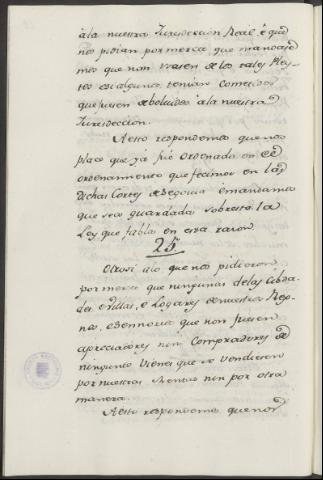 à la nuestra Jurisdiccion Real é que
nos pidian por merce que mandase
mos que non usasen de los tales Pley-
tos é si algunos tenian comezados
que fuesen debolvidos à la nuestra
Jurisdiccion.
A esto respondemos que nos
place que yá fue ordenado en el
ordenamiento que fecimos en las
dichas Cortes de Segovia é mandamos
que sea guardada sobresto la
Ley que fabla en esta razon
25
Otrosi alo que nos pidieron
por merce que ningunas de las Cibda-
des é Villas, é Logares de nuestros Reg-
nos, é Sennorios que non fuesen
apreciadores nin Compradores de
ningunos vienes que se vendiesen
por nuestras Rentas nin por otra
manera.
A esto respondemos que nos